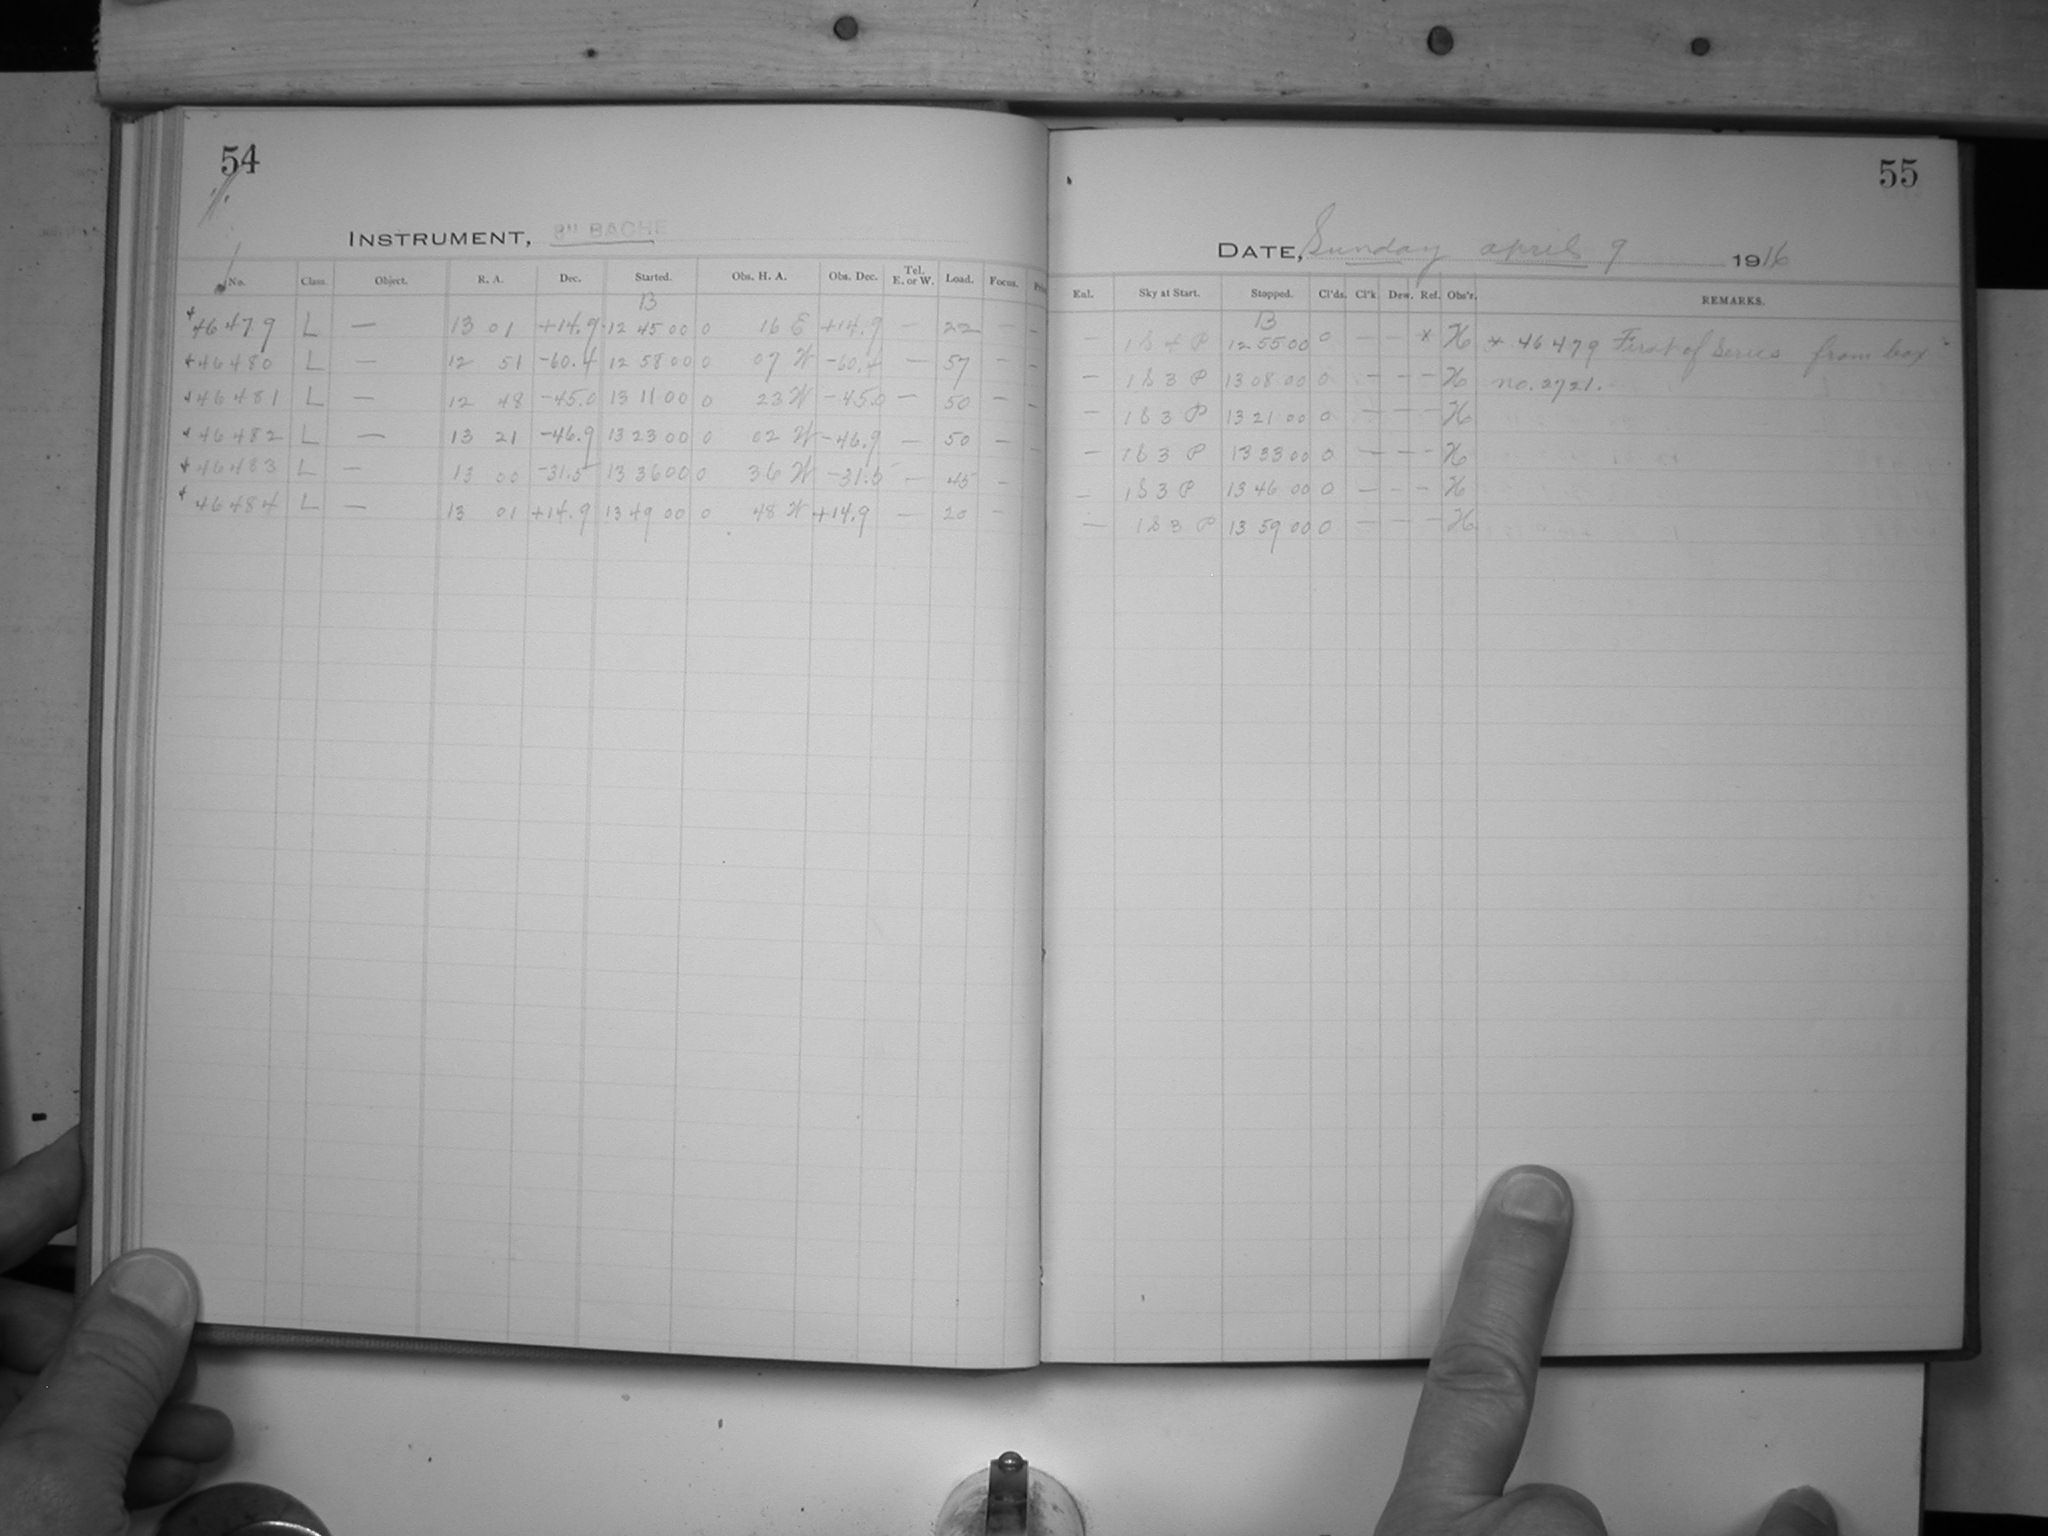 54
INSTRUMENT, 8" BACHE
No. Class. Object. R. A. Dec. Started. Obs. H. A. Obs. Dec. Tel. E. or W. Load. Focus.
13
46479 L — 13 01 +14.9 12 45 00 0 16 E +14.9 — 22 —
46480 L — 12 51 -60.4 12 58 00 0 07 W -60.4 — 57 — —
46481 L — 12 48 -45.0 13 11 00 0 23 W -45.0 — 50 — —
46482 L — 13 21 -46.9 13 23 00 0 02 W -46.9 — 50 —
46483 L — 13 00 -31.5 13 36 00 0 36 W -31.5 — 45 —
46484 L — 13 01 +14.9 13 49 00 0 48 W +14.9 — 20 —
55
DATE, Sunday april 9 1916
Eul. Sky at Start. Stopped. Cl'ds. Cl'k. Dew. Ref. Obs'r. REMARKS.
13
— 1S4P 12 55 00 0 — — * H * 46479 First of Series from box
— 1S3P 13 08 00 0 — — — H no. 2721.
— 1S3P 13 21 00 0 — — — H
— 1S3P 13 33 00 0 — — — H
— 1S3P 13 46 00 0 — — — H
— 1S3P 13 59 00 0 — — — H